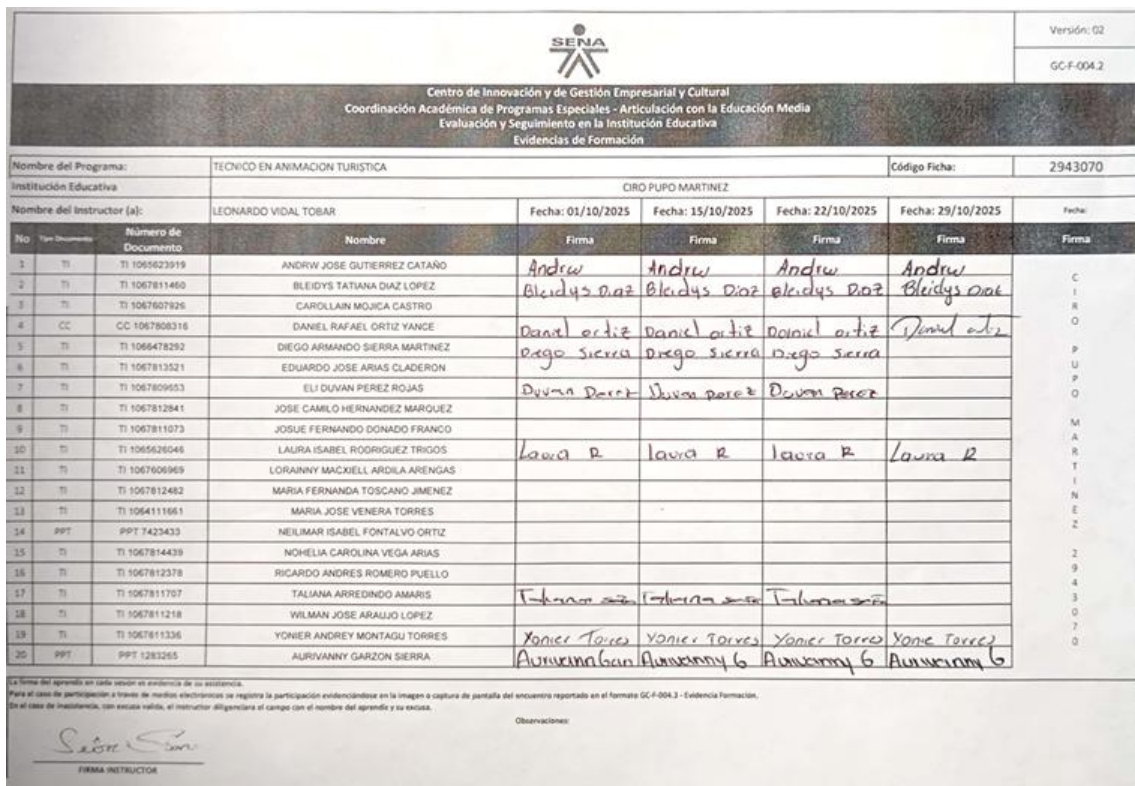 SENA
Versión: 02
GC-F-004.2
Centro de Innovación y de Gestión Empresarial y Cultural
Coordinación Académica de Programas Especiales - Articulación con la Educación Media
Evaluación y Seguimiento en la Institución Educativa
Evidencias de Formación
Nombre del Programa: TECNICO EN ANIMACION TURISTICA Código Ficha: 2943070
Institución Educativa CIRO PUPO MARTINEZ
Nombre del Instructor (a): LEONARDO VIDAL TOBAR Fecha: 01/10/2025 Fecha: 15/10/2025 Fecha: 22/10/2025 Fecha: 29/10/2025 Fecha:
No Tipo Documento Número de Documento Nombre Firma Firma Firma Firma Firma
1 TI TI 1065623919 ANDRW JOSE GUTIERREZ CATAÑO Andrw Andrw Andrw Andrw
2 TI TI 1067811460 BLEIDYS TATIANA DIAZ LOPEZ Bleidys Diaz Bleidys Diaz Bleidys Diaz Bleidys Diaz
3 TI TI 1067607926 CAROLLAIN MOJICA CASTRO
4 CC CC 1067808316 DANIEL RAFAEL ORTIZ YANCE Daniel ortiz Daniel ortiz Daniel ortiz Daniel ortiz
5 TI TI 1066478292 DIEGO ARMANDO SIERRA MARTINEZ Diego Sierra Diego Sierra Diego Sierra
6 TI TI 1067813521 EDUARDO JOSE ARIAS CLADERON
7 TI TI 1067809653 ELI DUVAN PEREZ ROJAS Duvan Perez Duvan perez Duvan Perez
8 TI TI 1067812841 JOSE CAMILO HERNANDEZ MARQUEZ
9 TI TI 1067811073 JOSUE FERNANDO DONADO FRANCO
10 TI TI 1065626046 LAURA ISABEL RODRIGUEZ TRIGOS Laura R laura R laura R Laura R
11 TI TI 1067606969 LORAINNY MACXIELL ARDILA ARENGAS
12 TI TI 1067812482 MARIA FERNANDA TOSCANO JIMENEZ
13 TI TI 1064111661 MARIA JOSE VENERA TORRES
14 PPT PPT 7423433 NEILIMAR ISABEL FONTALVO ORTIZ
15 TI TI 1067814439 NOHELIA CAROLINA VEGA ARIAS
16 TI TI 1067812378 RICARDO ANDRES ROMERO PUELLO
17 TI TI 1067811707 TALIANA ARREDINDO AMARIS
18 TI TI 1067811218 WILMAN JOSE ARAUJO LOPEZ
19 TI TI 1067811336 YONIER ANDREY MONTAGU TORRES Yonier Torres Yonier Torres Yonier Torres Yonie Torres
20 PPT PPT 1283265 AURIVANNY GARZON SIERRA Aurivanny G Aurivanny G Aurivanny G
CIRO PUPO MARTINEZ 2943070
La firma del aprendiz en cada sesión es evidencia de su asistencia.
Para el caso de participación a través de medios electrónicos se registra la participación evidenciándose en la imagen o captura de pantalla del encuentro reportado en el formato GC-F-004.3 - Evidencia Formación.
En el caso de inasistencia, con excusa valida, el instructor diligenciara el campo con el nombre del aprendiz y su excusa.
Observaciones:
FIRMA INSTRUCTOR